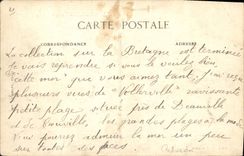 CARTE POSTALE
CORRESPONDANCE ADRESSE
La collection sur la Bretagne est terminée
je vais reprendre si vous le voulez bien
cette mer que vous aimez tant. J'ai reçu
plusieurs vues de Villerville ravissante
petite plage située près de Deauville
et de Trouville, les grandes plages à la mode
Vous pourrez admirer la mer un peu
sur toutes des faces